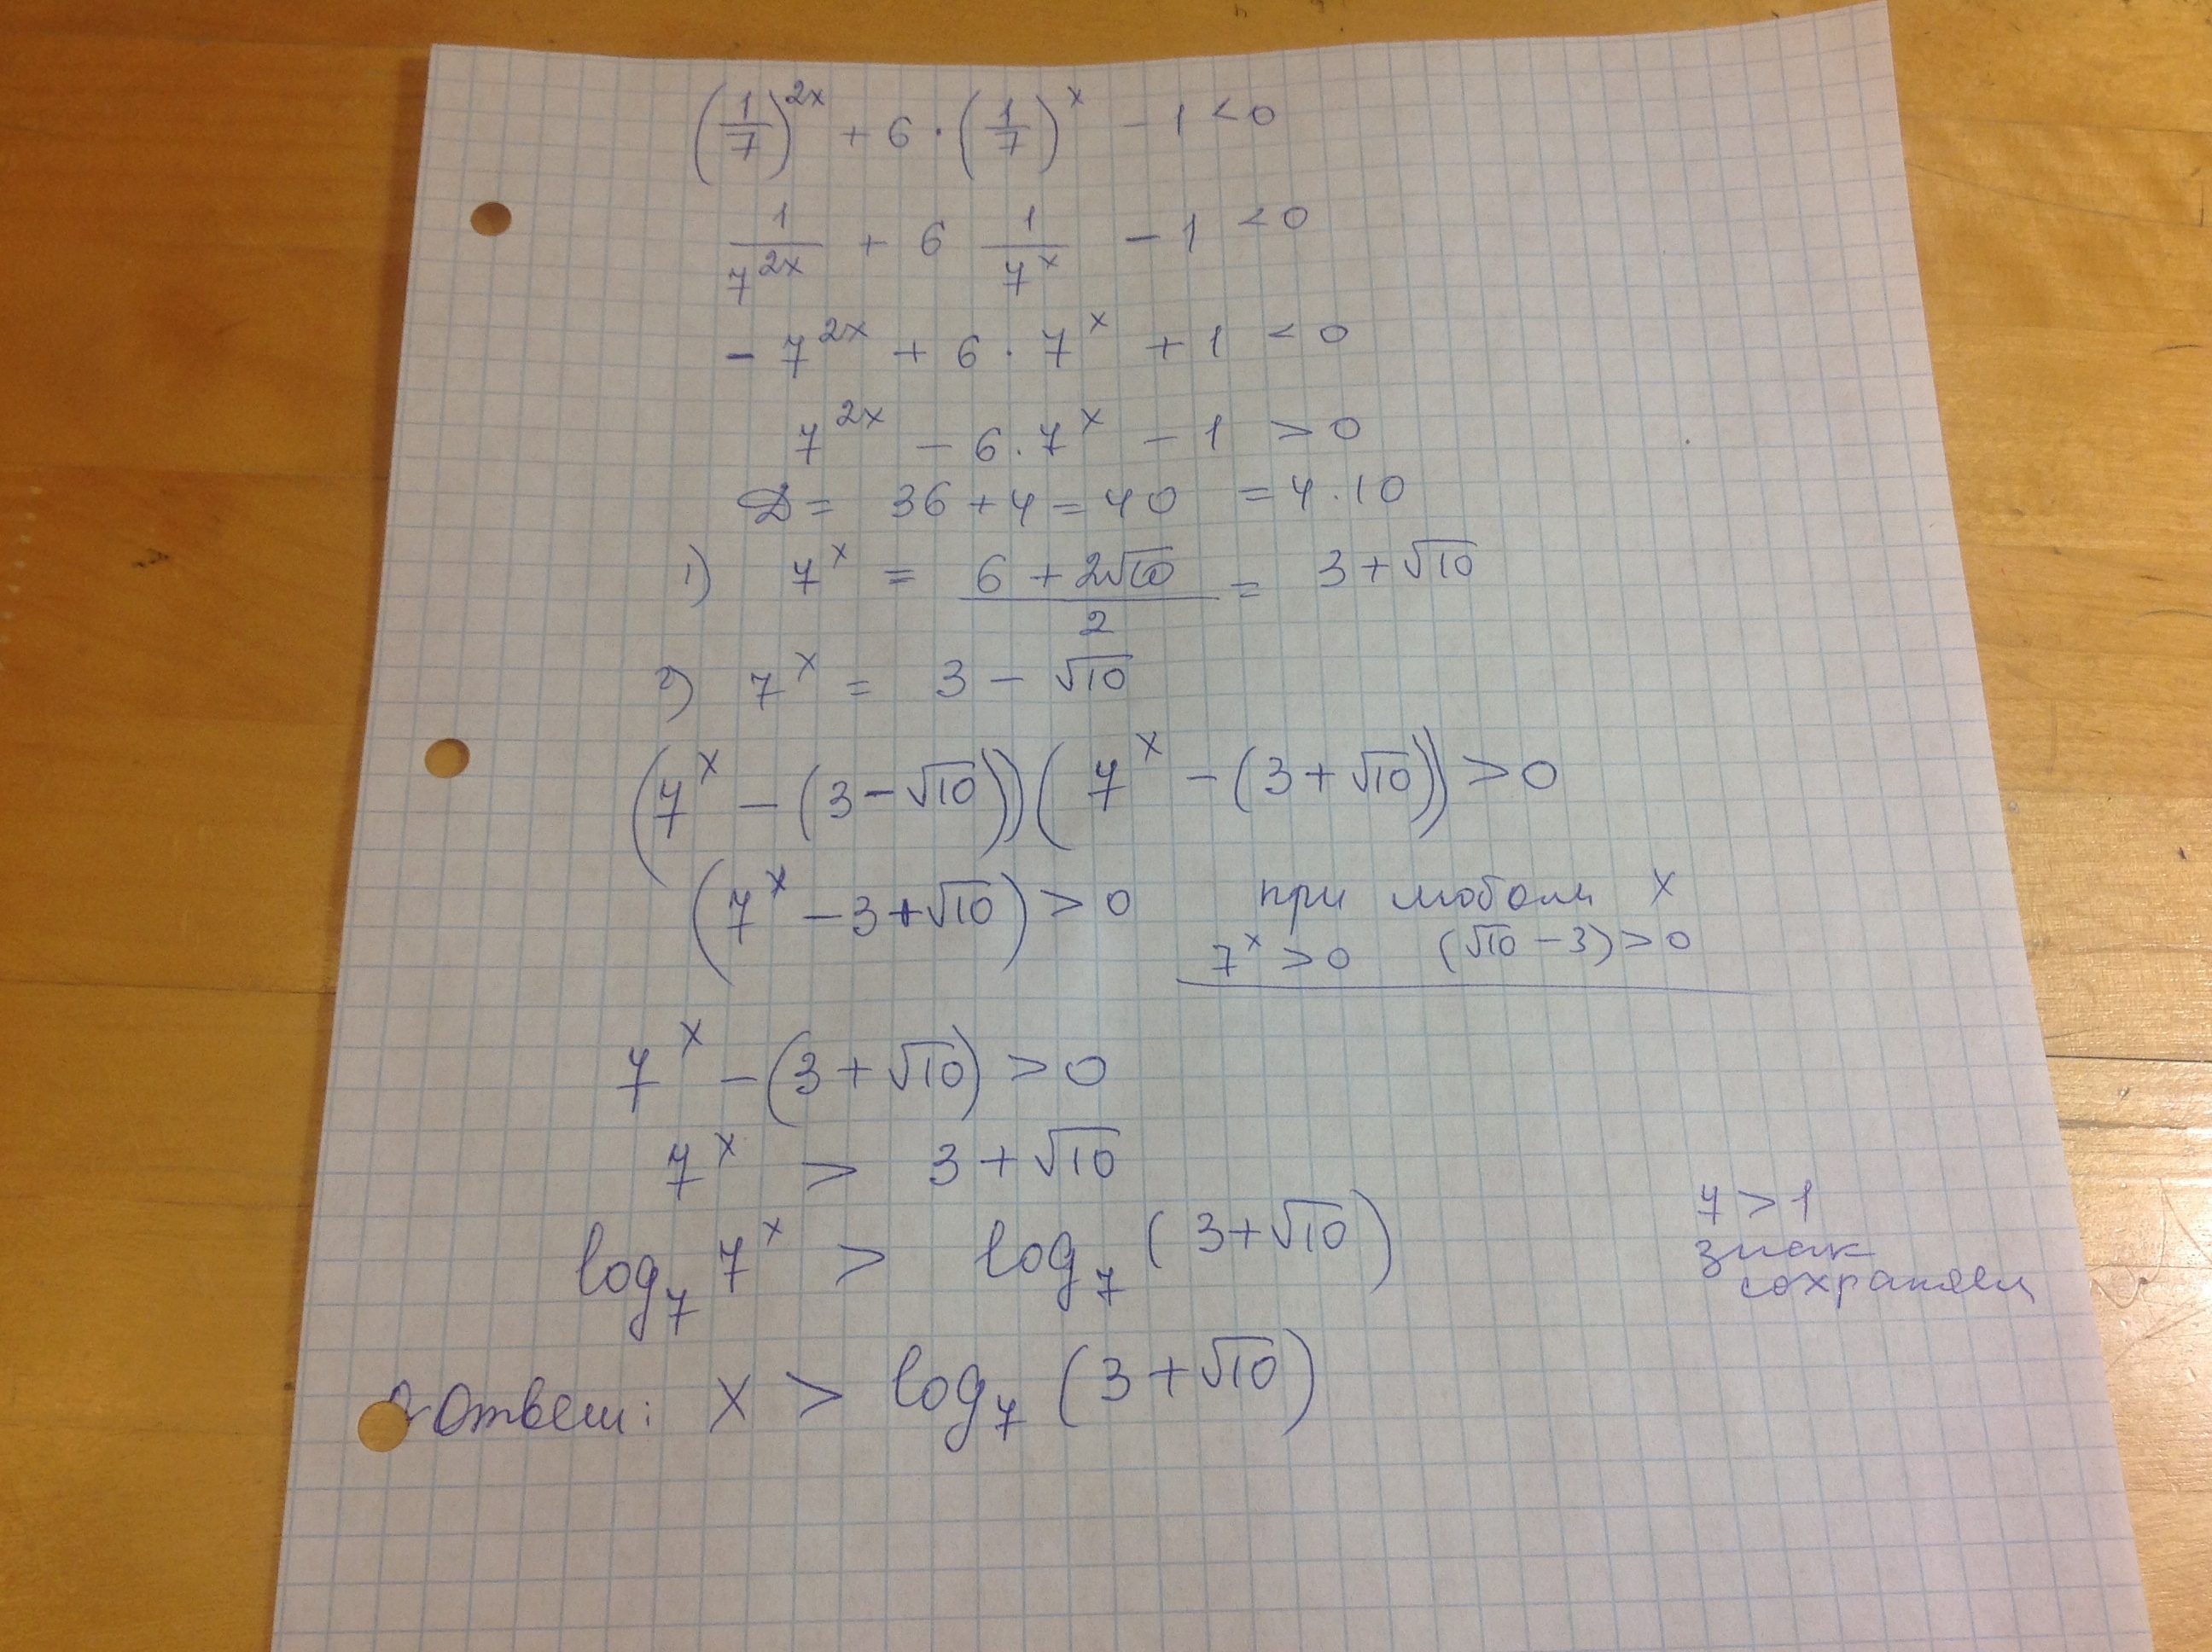 (1/7)^2x + 6 · (1/7)^x - 1 < 0
1/7^2x + 6 1/7^x - 1 < 0
- 7^2x + 6 · 7^x + 1 < 0
7^2x - 6 · 7^x - 1 > 0
D = 36 + 4 = 40 = 4 · 10
1) 7^x = (6 + 2√10)/2 = 3 + √10
2) 7^x = 3 - √10
(7^x - (3 - √10))(7^x - (3 + √10)) > 0
(7^x - 3 + √10) > 0 при любом x
7^x > 0 (√10 - 3) > 0
7^x - (3 + √10) > 0
7^x > 3 + √10
log₇ 7^x > log₇ (3 + √10)
7 > 1
знак
сохраняем
Ответ: x > log₇ (3 + √10)